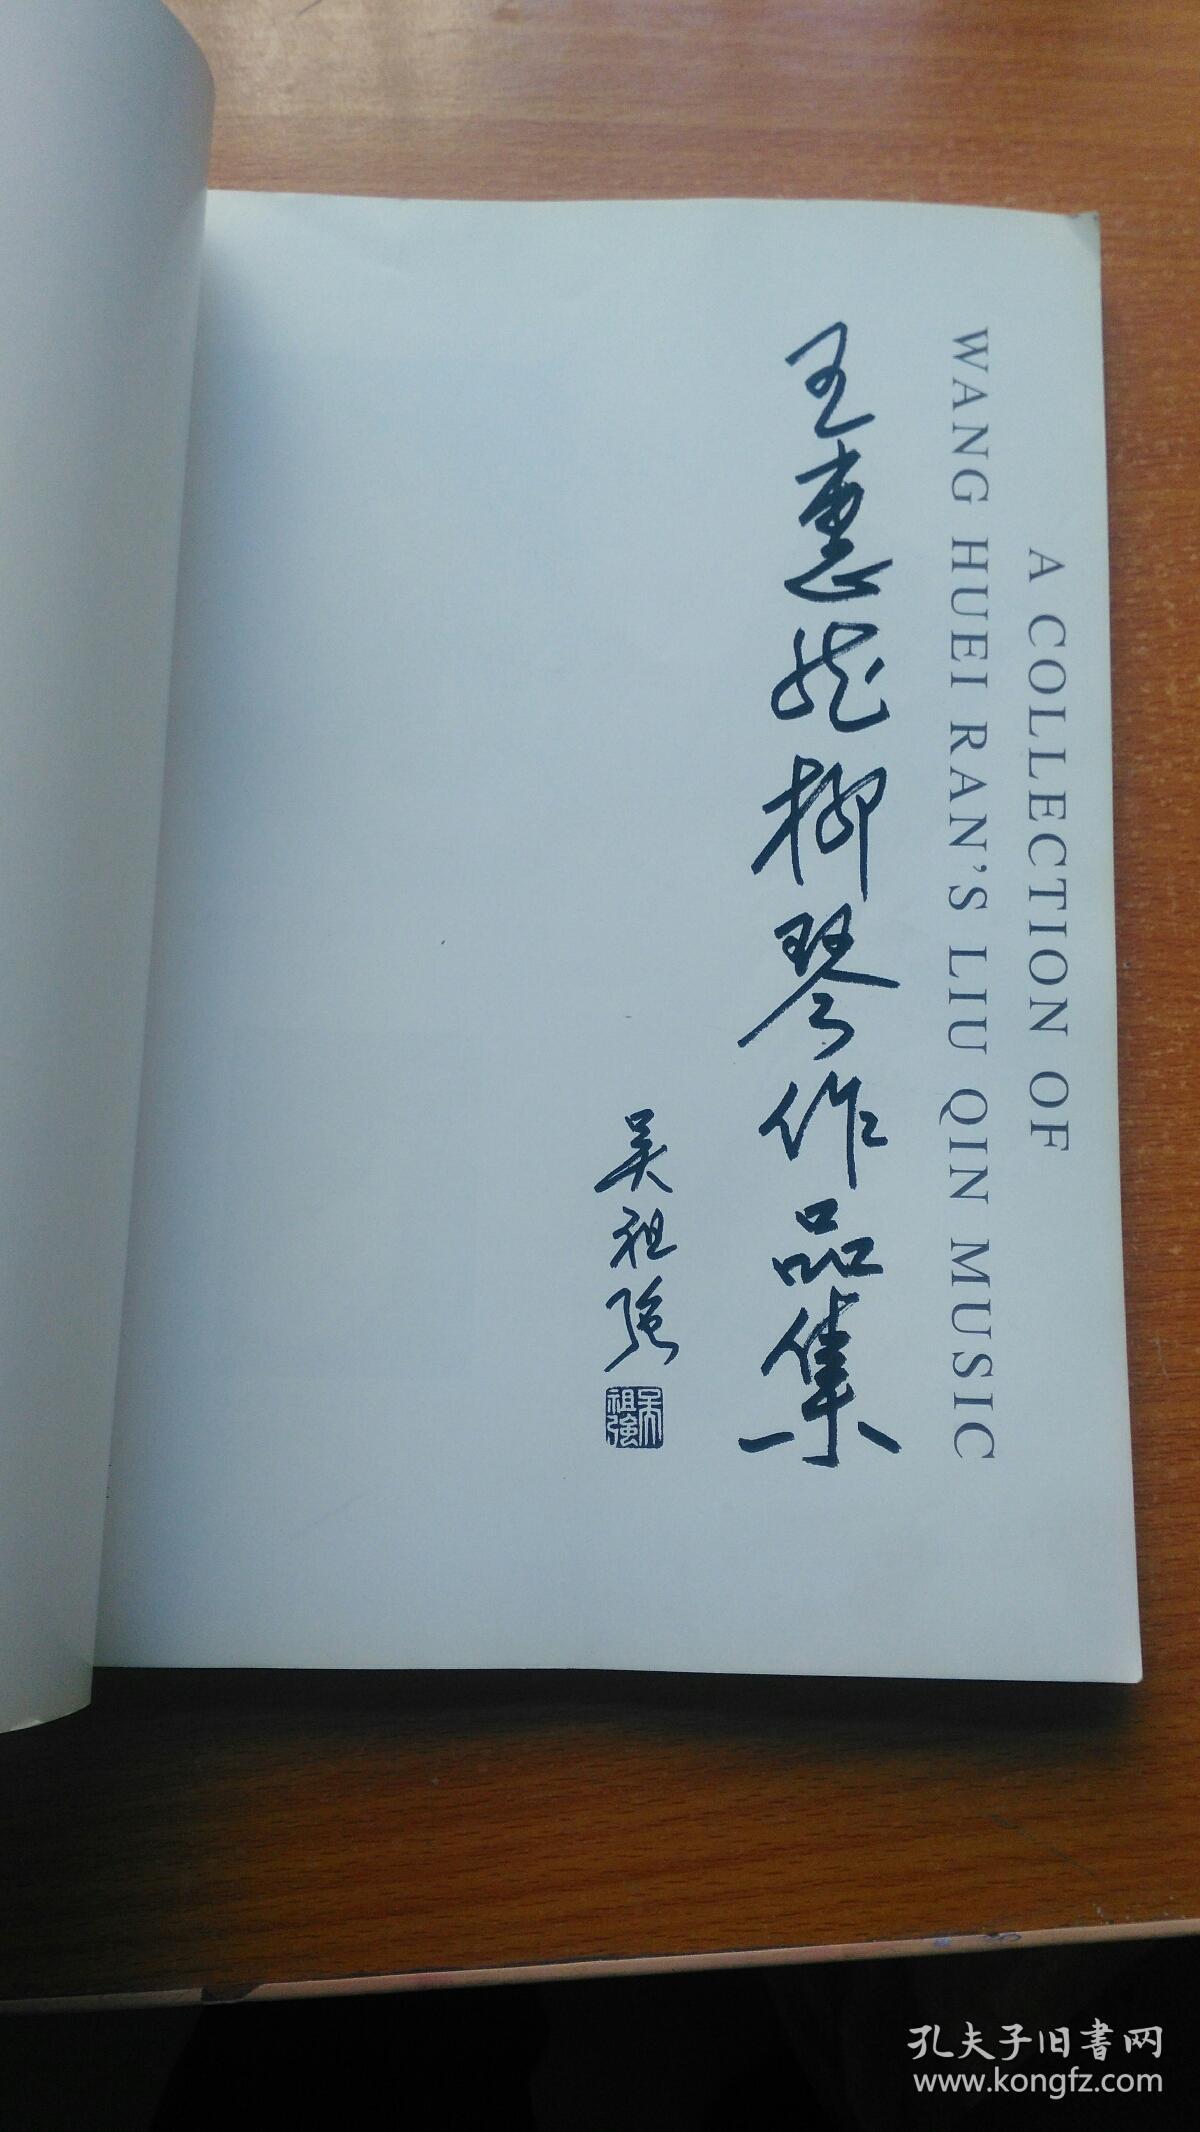 A COLLECTION OF
WANG HUEI RAN'S LIU QIN MUSIC
王惠然柳琴作品集
吴祖强
吴祖強
孔夫子旧書网
www.kongfz.com